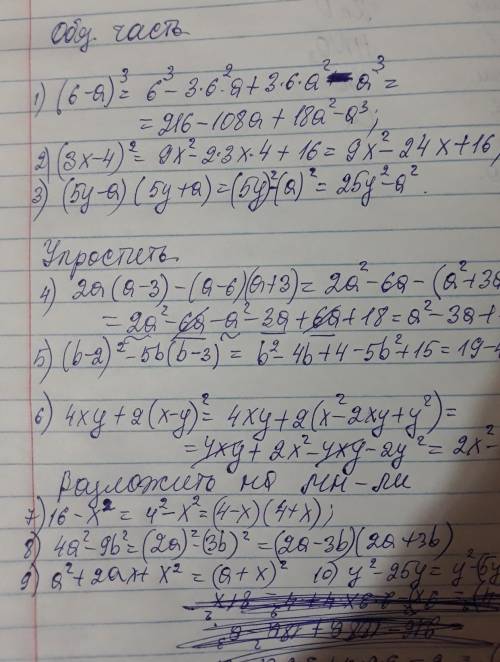 Общ. часть
1) (6-a)³ = 6³ - 3·6²·a + 3·6·a² - a³ =
= 216 - 108a + 18a² - a³;
2) (3x-4)² = 9x² - 2·3x·4 + 16 = 9x² - 24x + 16,
3) (5y-a)(5y+a) = (5y)² - (a)² = 25y² - a².
Упростить
4) 2a(a-3) - (a-6)(a+3) = 2a² - 6a - (a² + 3a
= 2a² - 6a - a² - 3a + 6a + 18 = a² - 3a +
5) (b-2)² - 5b(b-3) = b² - 4b + 4 - 5b² + 15 = 19 - 4
6) 4xy + 2(x-y)² = 4xy + 2(x² - 2xy + y²) =
= 4xy + 2x² - 4xy - 2y² = 2x² -
Разложить на мн-ли
7) 16 - x² = 4² - x² = (4-x)(4+x);
8) 4a² - 9b² = (2a)² (3b)² = (2a-3b)(2a+3b)
9) a² + 2ax + x² = (a+x)² 10) y² - 25y = y² - (5y